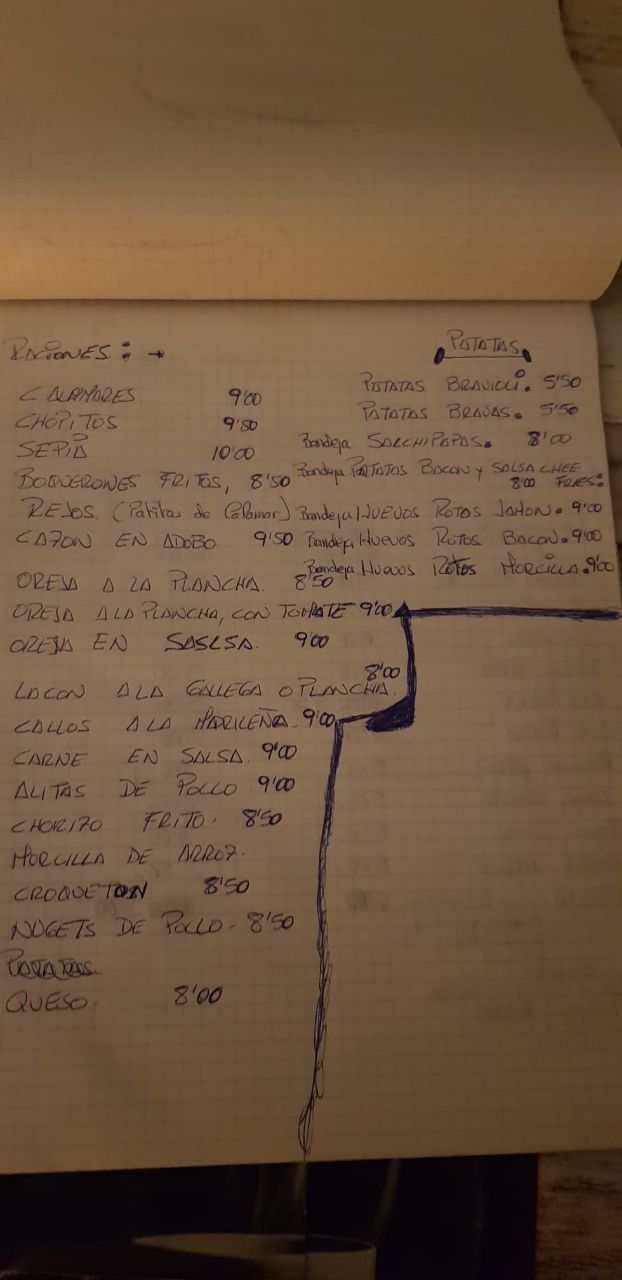 RACIONES: →
CALAMARES 9'00
CHOPITOS 9'50
SEPIA 10'00
BOQUERONES FRITOS, 8'50
REJOS. (Patitas de Calamar)
CAZON EN ADOBO. 9'50
OREJA A LA PLANCHA. 8'50
OREJA A LA PLANCHA, CON TOMATE 9'00
OREJA EN SASLSA. 9'00
LACON A LA GALLEGA O PLANCHA. 8'00
CALLOS A LA MARILEÑA. 9'00
CARNE EN SALSA. 9'00
ALITAS DE POLLO 9'00
CHORIZO FRITO. 8'50
MORCILLA DE ARROZ.
CROQUETON 8'50
NUGETS DE POLLO. 8'50
PATATAS
QUESO. 8'00
PATATAS
PATATAS BRAVIOLI. 5'50
PATATAS BRAVAS. 5'50
Bandeja SALCHIPAPAS. 8'00
Bandeja PATATAS BACON Y SALSA CHEE
8'00 FRIES:
Bandeja HUEVOS ROTOS JAMON. 9'00
Bandeja HUEVOS ROTOS BACON. 9'00
Bandeja HUEVOS ROTOS MORCILLA. 9'00